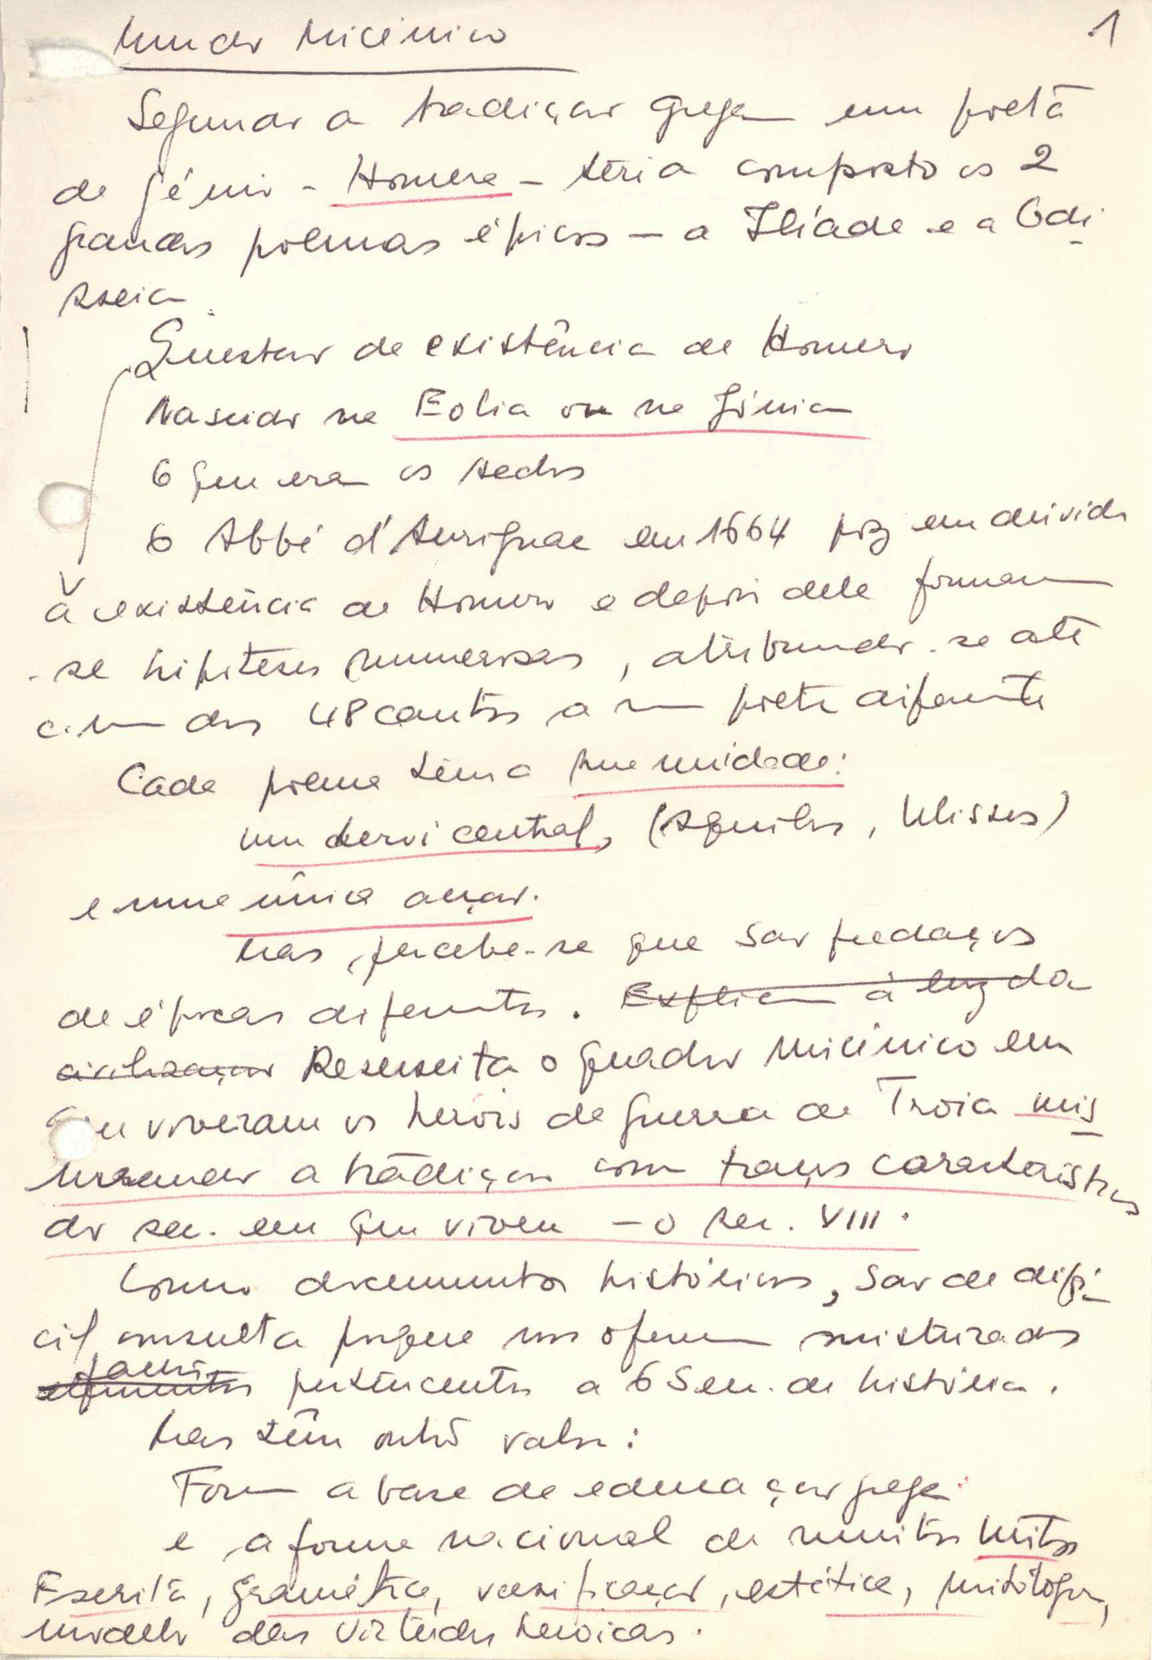 Mundo Micénico
1
Segundo a tradição grega um poeta
de génio - Homero - teria composto os 2
grandes poemas épicos - a Ilíade e a Odi
sseia
Questão de existência de Homero
Nascido na Eolia ou na Jónia
O que eram os aedos
O Abbé d'Aurignac em 1664 poz em dúvida
a existência de Homero e depois dele formam
-se hipóteses numerosas, atribuindo-se até
c. um dos 48 cantos a um poeta diferente
Cada poema tem a sua unidade:
um herói central, (Aquiles, Ulisses)
e uma única acção.
Mas, percebe-se que são pedaços
de épocas diferentes. Explicam à luz da
civilização Ressuscita o quadro Micénico em
que viveram os heróis da guerra de Troia mis
turando a tradição com traços característicos
do sec. em que viveu - o sec. VIII.
Como documentos históricos, são de difí
cil consulta porque nos oferecem misturados
elementos pertencentes a 6 Sec. de história.
Mas têm outro valor:
Foram a base da educação grega
e a forma nacional de muitos Mitos
Escrita, gramática, versificação, estética, mitologia,
modelo das virtudes heroicas.